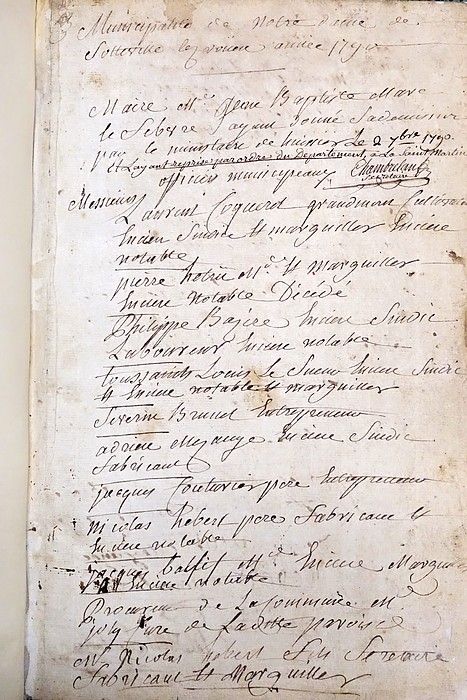 Municipalité de Notre dame de
Sotteville les rouen année 1790
Maire Mr. Jean Baptiste Marc
le Febvre ayant donné Sa démission
par le ministaire de huissier Le 2 7bre 1790.
et Layant reprise par ordre du Departement, a La Saint Martin
officiers municipeaux Chambellant
Secrétaire
Messieurs Laurent Coquerel grandmon Cultivateur
Encien Sindic Et marguiller Encien
notable
pierre Md. Et marguiller
Encien Notable Décédé
Philippe Bazire Encien Sindic
Laboureur Encien notable
toussaints Louis Le Sueur Encien Sindic
Et Encien notable Et marguiller
Severin Brunel Entrepreneur
adrien Mezange Encien Sindic
fabricant
jacques Couturier pere Entrepreneur
nicolas Robert pere Fabricant Et
Encien notable
Md. Encien Marguiller
Encien notable
Procureur de La Commune Mr.
joly Cure de Ladite paroisse
Mr. Nicolas Robert Fils Secretaire
Fabricant Et Marguiller